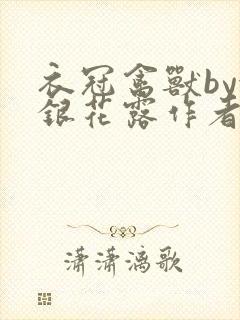 衣冠禽獸by
銀花露作者
瀟瀟漓歌